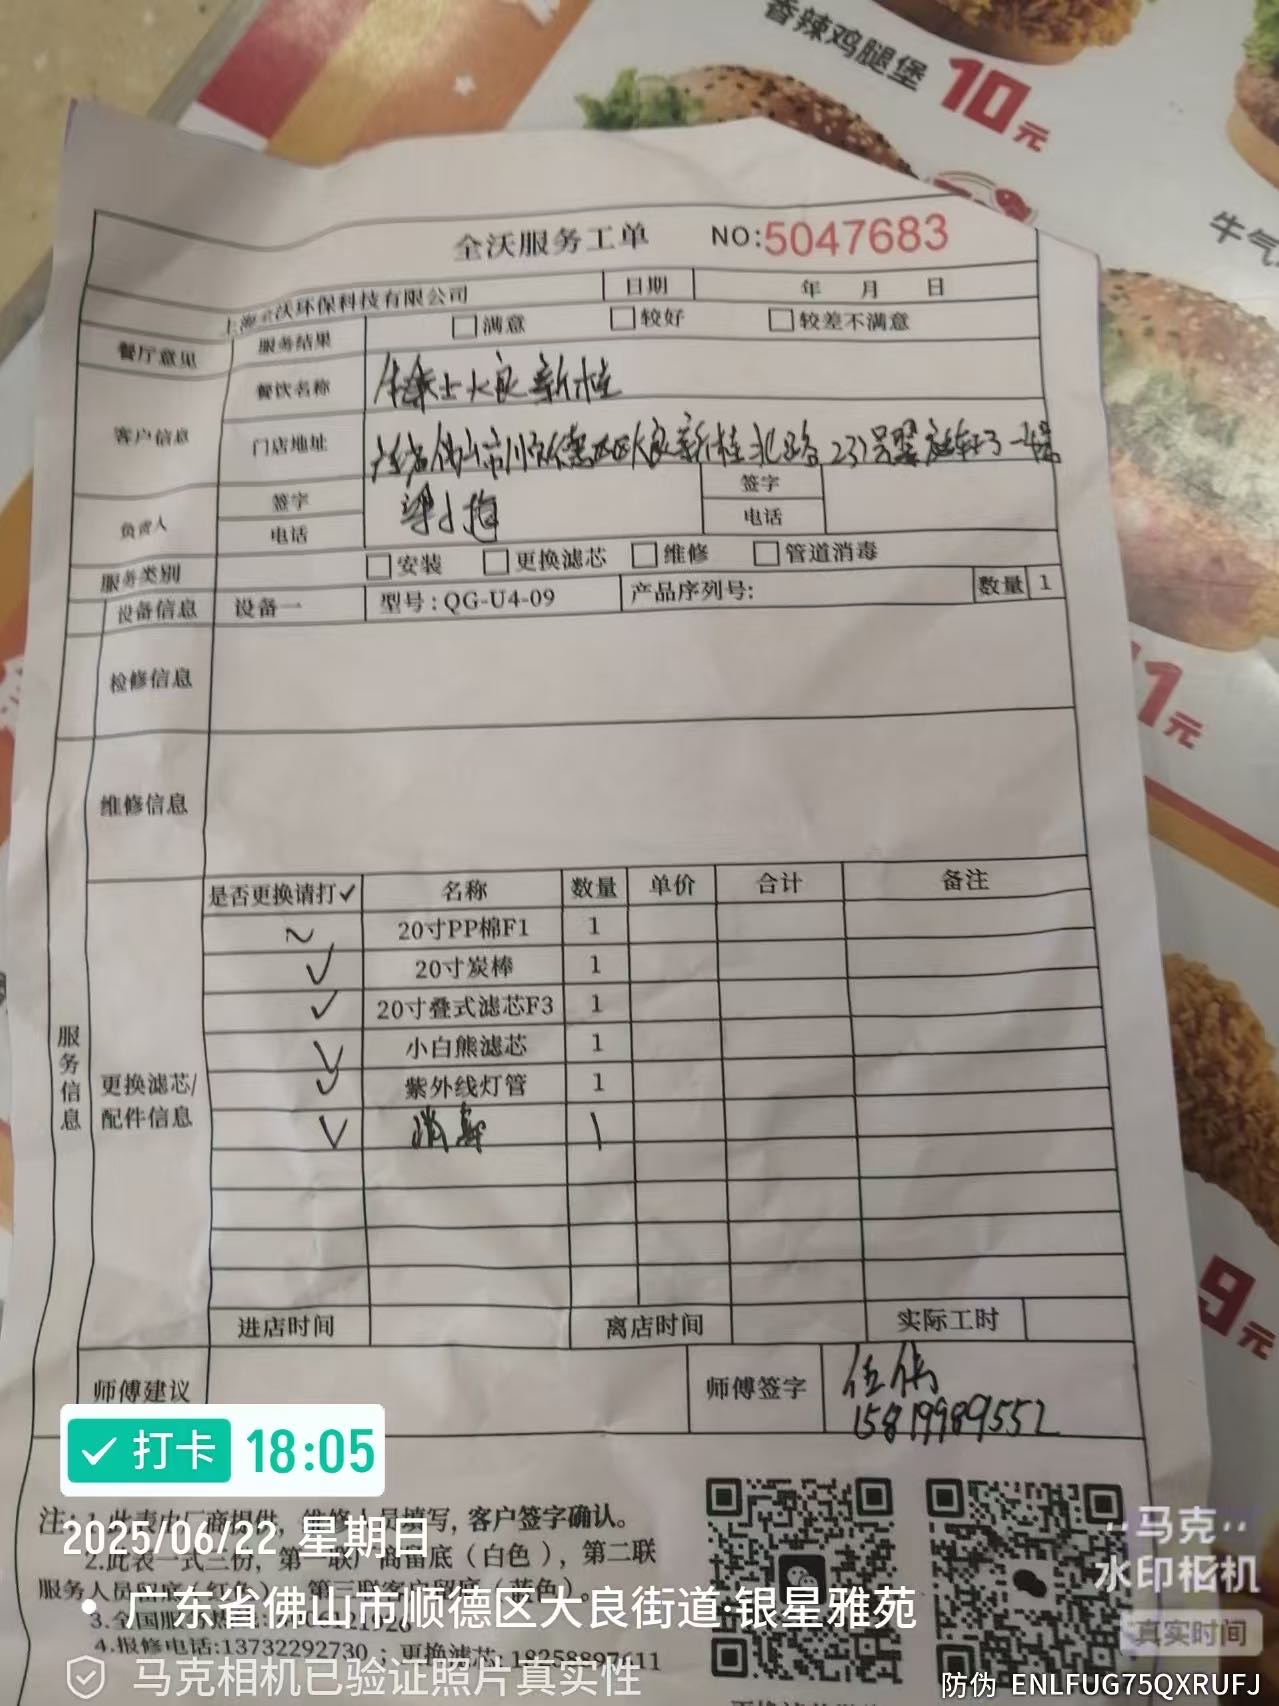 香辣鸡腿堡 10元
牛气
全沃服务工单 NO:5047683
上海全沃环保科技有限公司 日期 年 月 日
餐厅意见 服务结果 满意 较好 较差不满意
客户信息 餐饮名称 士大良新桂
门店地址 佛山市顺德区大良新桂北路231号
负责人 签字 梁小梅 签字
电话 电话
服务类别 安装 更换滤芯 维修 管道消毒
设备信息 设备一 型号:QG-U4-09 产品序列号: 数量 1
检修信息
1元
维修信息
服务信息
更换滤芯/
配件信息
是否更换请打✓ 名称 数量 单价 合计 备注
20寸PP棉F1 1
✓ 20寸炭棒 1
✓ 20寸叠式滤芯F3 1
✓ 小白熊滤芯 1
✓ 紫外线灯管 1
✓ 消毒 1
9元
进店时间 离店时间 实际工时
师傅建议 师傅签字 伍伟
15819989552
✓ 打卡 18:05
注:1.此表由厂商提供,维修人员填写,客户签字确认。
2025/06/22 星期日
2.此表一式三份,第一联厂商留底(白色),第二联
服务人员
广东省佛山市顺德区大良街道·银星雅苑
3.全国服
4.报修电话:13732292730 ; 更换滤芯:
马克相机已验证照片真实性
马克
水印相机
真实时间
防伪 ENLFUG75QXRUFJ